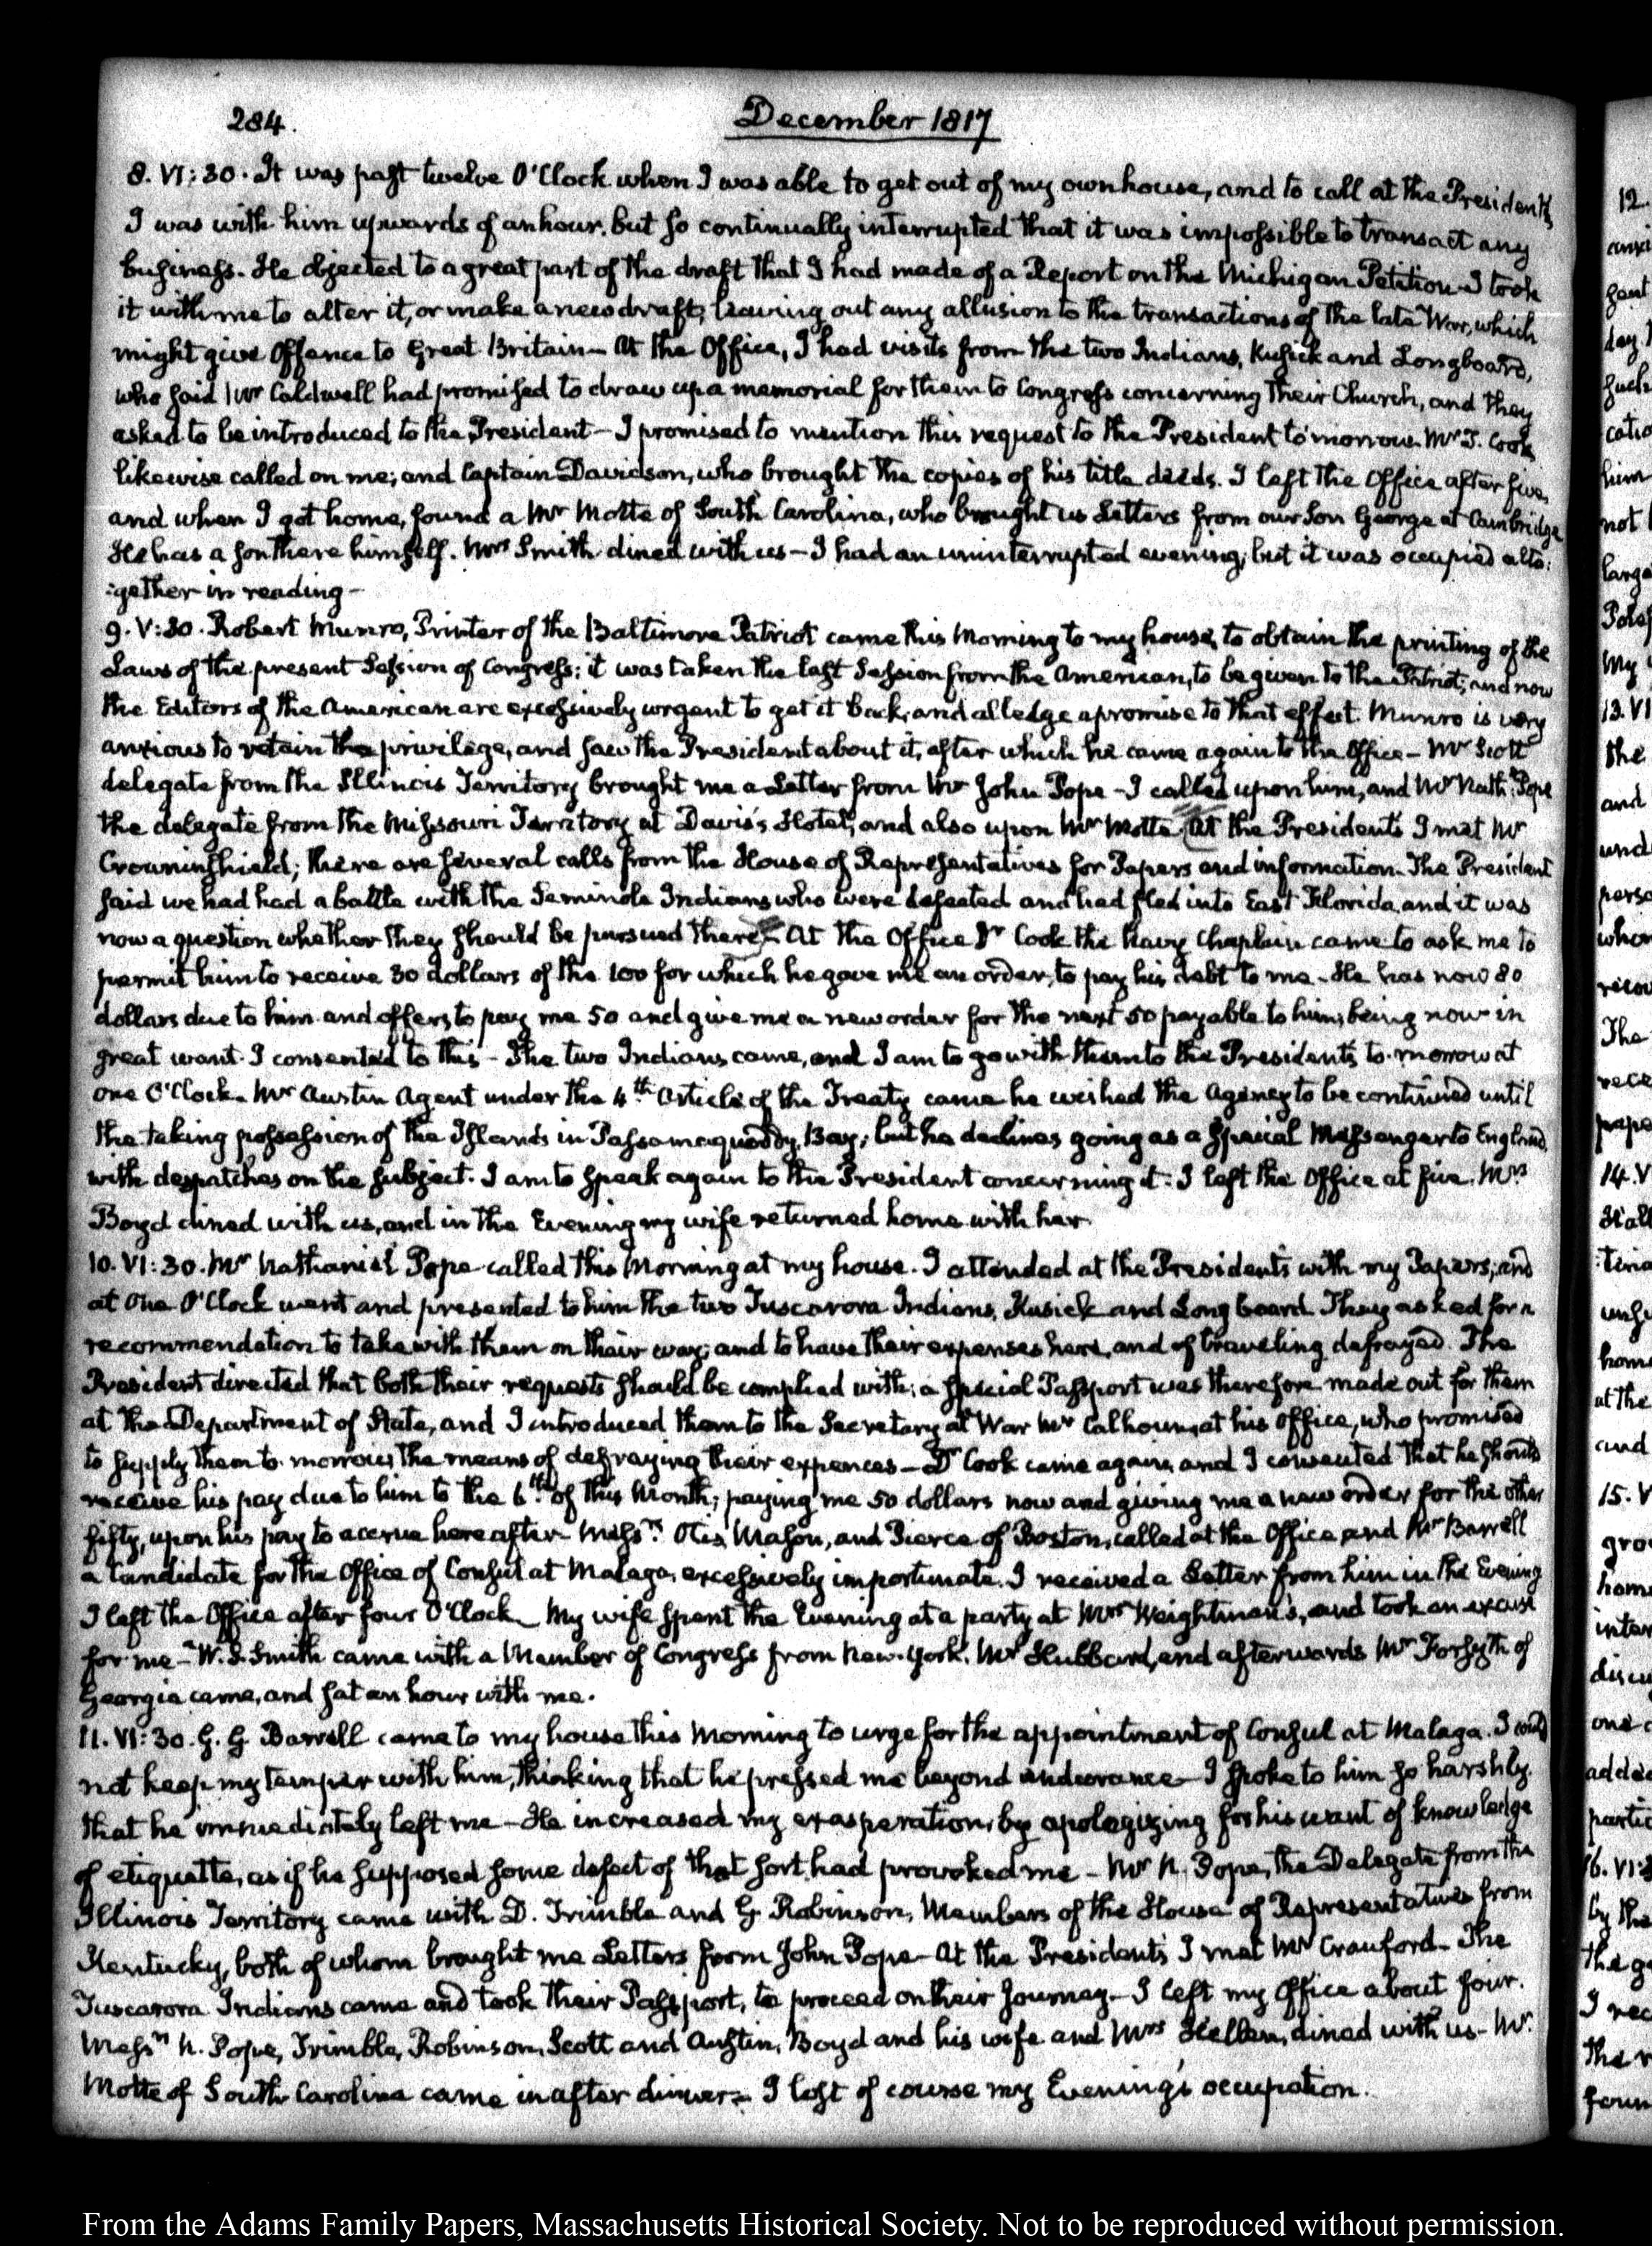 284.
December 1817
8. VI:30. It was past twelve O'Clock when I was able to get out of my own house, and to call at the President's,
I was with him upwards of an hour, but so continually interrupted that it was impossible to transact any
business. He objected to a great part of the draft that I had made of a Report on the Michigan Petition — I took
it with me to alter it, or make a new draft, leaving out any allusion to the transactions of the late War, which
might give Offence to Great Britain — At the Office, I had visits from the two Indians, Kusick and Longboard,
who said Mr Caldwell had promised to draw up a memorial for them to Congress concerning their Church, and they
asked to be introduced to the President — I promised to mention this request to the President to morrow. Mr J. Cook
likewise called on me; and Captain Davidson, who brought the copies of his title deeds. I left the Office after five,
and when I got home, found a Mr Motte of South Carolina, who brought us Letters from our Son George at Cambridge
He has a son there himself. Mrs Smith dined with us — I had an uninterrupted evening, but it was occupied alto:
:gether in reading —
9. V:30. Robert Munro, Printer of the Baltimore Patriot came this Morning to my house, to obtain the printing of the
Laws of the present Session of Congress: it was taken the last Session from the American, to be given to the Patriot; and now
the Editors of the American are excessively urgent to get it back, and alledge a promise to that effect. Munro is very
anxious to retain the privilege, and saw the President about it, after which he came again to the Office — Mr Scott
delegate from the Illinois Territory brought me a Letter from Mr John Pope — I called upon him, and Mr Nathl Pope
the delegate from the Missouri Territory at Davis's Hotel, and also upon Mr Motte. At the President's I met Mr
Crowninshield; there are several calls from the House of Representatives for Papers and information. The President
said we had had a battle with the Seminole Indians who were defeated and had fled into East Florida, and it was
now a question whether they should be pursued there — At the Office Dr Cook the Navy Chaplain came to ask me to
permit him to receive 30 dollars of the 100 for which he gave me an order, to pay his debt to me. He has now 80
dollars due to him and offers to pay me 50 and give me a new order for the next 50 payable to him, being now in
great want. I consented to this — The two Indians came, and I am to go with them to the President's to-morrow at
one O'Clock. Mr Austin Agent under the 4th Article of the Treaty came he wished the Agency to be continued until
the taking possession of the Islands in Passamaquoddy Bay; but he declines going as a special Messenger to England
with despatches on the subject. I am to speak again to the President concerning it. I left the Office at five. Mrs
Boyd dined with us, and in the Evening my wife returned home with her.
10. VI:30. Mr Nathaniel Pope called this Morning at my house. I attended at the President's with my Papers, and
at One O'Clock went and presented to him the two Tuscarora Indians, Kusick and Longboard. They asked for a
recommendation to take with them on their way; and to have their expenses here, and of traveling defrayed. The
President directed that both their requests should be complied with; a special Passport was therefore made out for them
at the Department of State, and I introduced them to the Secretary at War Mr Calhoun, at his office, who promised
to supply them to-morrow, the means of defraying their expences — Dr Cook came again, and I consented that he should
receive his pay due to him to the 6th of this Month; paying me 50 dollars now and giving me a new order for the other
fifty, upon his pay to accrue hereafter — Messrs Otis, Mason, and Pierce of Boston, called at the Office and Mr Barrell
a Candidate for the Office of Consul at Malaga, excessively importunate. I received a Letter from him in the Evening
I left the Office after four O'Clock. My wife spent the Evening at a party at Mrs Weightman's, and took an excuse
for me — W. S. Smith came with a Member of Congress from New-York. Mr Hubbard, and afterwards Mr Forsyth of
Georgia came, and sat an hour with me.
11. VI:30. G. G Barrell came to my house this Morning to urge for the appointment of Consul at Malaga. I could
not keep my temper with him, thinking that he pressed me beyond endurance — I spoke to him so harshly
that he immediately left me — He increased my exasperation, by apologizing for his want of knowledge
of etiquette, as if he supposed some defect of that sort had provoked me — Mr N. Pope, the Delegate from the
Illinois Territory came with D. Trimble and G Robinson, Members of the House of Representatives from
Kentucky, both of whom brought me Letters from John Pope — At the President's I met Mr Crauford — The
Tuscarora Indians came and took their Passport, to proceed on their Journey — I left my Office about four.
Messrs N. Pope, Trimble, Robinson, Scott and Austin, Boyd and his wife and Mrs Hellen, dined with us — Mr.
Motte of South Carolina came in after dinner — I lost of course my Evening's occupation.
From the Adams Family Papers, Massachusetts Historical Society. Not to be reproduced without permission.